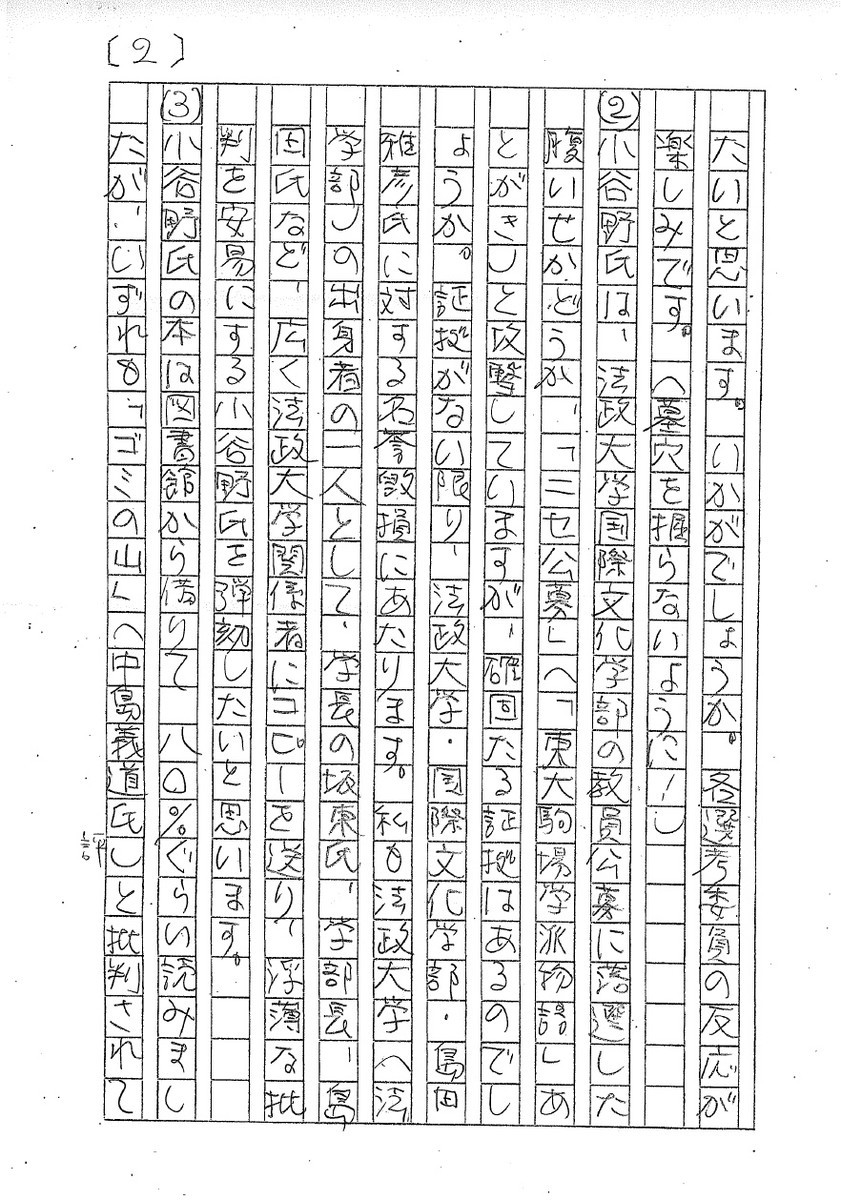 [2]
たいと思います。いかがでしょうか。各選考委員の反応が
楽しみです。へ墓穴を掘らないように!」
(2)小谷野氏は、法政大学国際文化学部の教員公募に落選した
腹いせかどうか、「ニセ公募」へ「東大駒場学派物語」あ
とがき」と攻撃していますが、確固たる証拠はあるのでし
ょうか。証拠がない限り、法政大学・国際文化学部・島田
雅彦氏に対する名誉毀損にあたります。私も法政大学(法
学部)の出身者の一人として、学長の坂東氏、学部長、島
田氏など、広く法政大学関係者にコピーを送り、浮薄な批
判を安易にする小谷野氏を弾劾したいと思います。
(3)小谷野氏の本は図書館から借りて 八〇%ぐらい読みまし
たが、いずれも「ゴミの山」へ中島義道氏」と批判されて